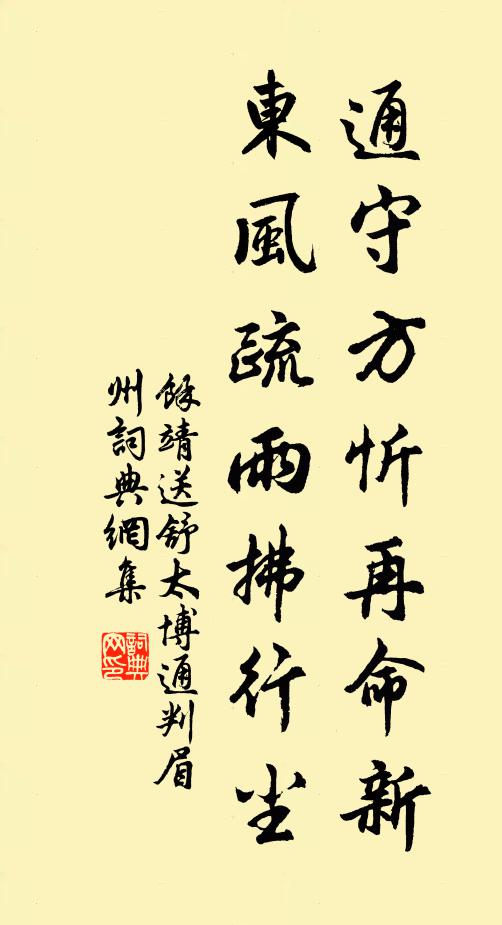 通守方忻再命新
東風疏雨拂行尘
餘靖送舒太博通判眉
州詞典網集
詞典
网印